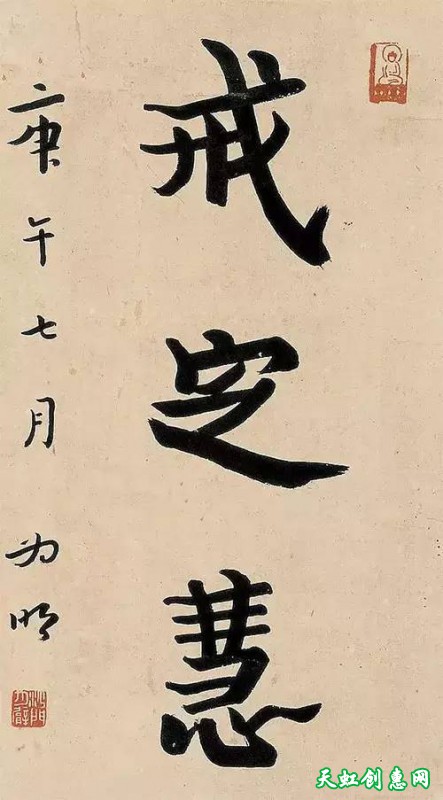 戒定慧
庚午七月 为明
天虹创惠网